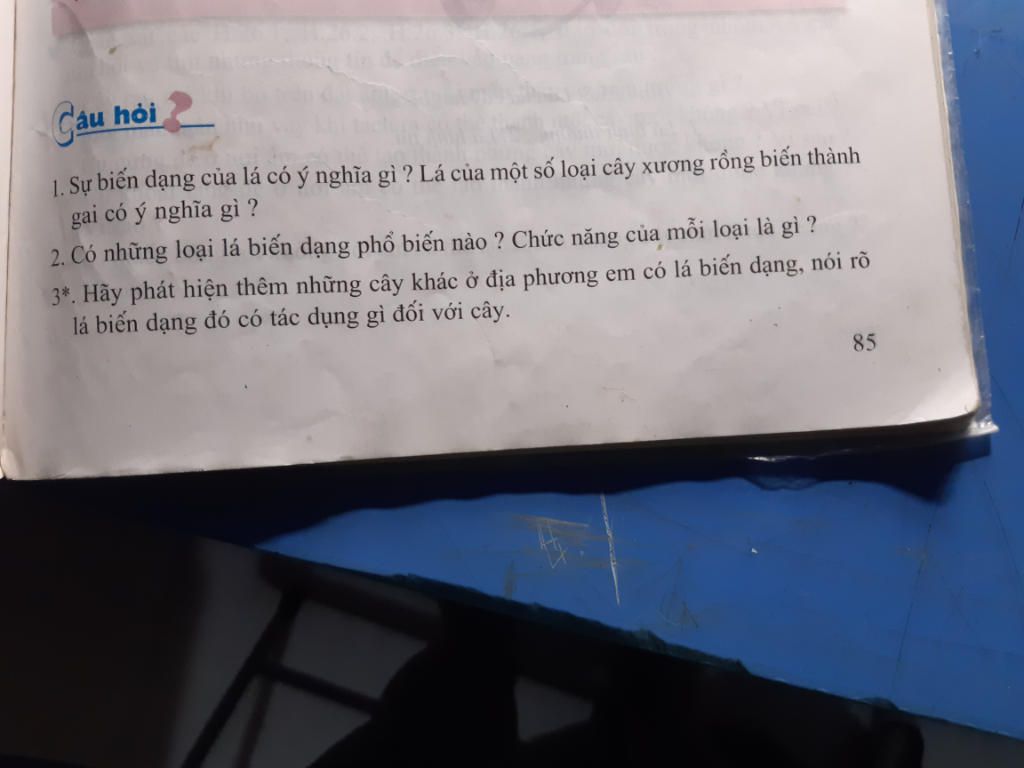 Câu hỏi ?
1. Sự biến dạng của lá có ý nghĩa gì ? Lá của một số loại cây xương rồng biến thành
gai có ý nghĩa gì ?
2. Có những loại lá biến dạng phổ biến nào ? Chức năng của mỗi loại là gì ?
3*. Hãy phát hiện thêm những cây khác ở địa phương em có lá biến dạng, nói rõ
lá biến dạng đó có tác dụng gì đối với cây.
85